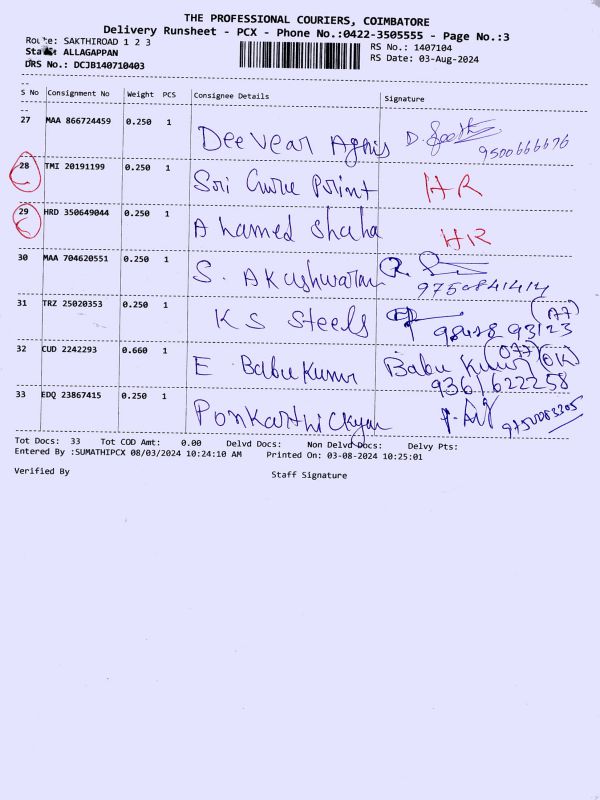 THE PROFESSIONAL COURIERS, COIMBATORE
Delivery Runsheet - PCX - Phone No.:0422-3505555 - Page No.:3
Route: SAKTHIROAD 1 2 3
RS No.: 1407104
Staff: ALLAGAPPAN
RS Date: 03-Aug-2024
DRS No.: DCJB140710403
S No Consignment No Weight PCS Consignee Details Signature
27 MAA 866724459 0.250 1 Deevear Agnis D. 9500666676
28 TMI 20191199 0.250 1 Sri Guru Point HR
29 HRD 350649044 0.250 1 Ahamed Shaha HR
30 MAA 704620551 0.250 1 S. Akushwaran 9750841414
31 TRZ 25020353 0.250 1 KS Steels 98428 93123 (A7)
32 CUD 2242293 0.660 1 E Babu Kumar Babu Kumar (077) (OK)
9361622258
33 EDQ 23867415 0.250 1 Ponkarthickyan 9750083305
Tot Docs: 33 Tot COD Amt: 0.00 Delvd Docs: Non Delvd Docs: Delvy Pts:
Entered By :SUMATHIPCX 08/03/2024 10:24:10 AM Printed On: 03-08-2024 10:25:01
Verified By Staff Signature